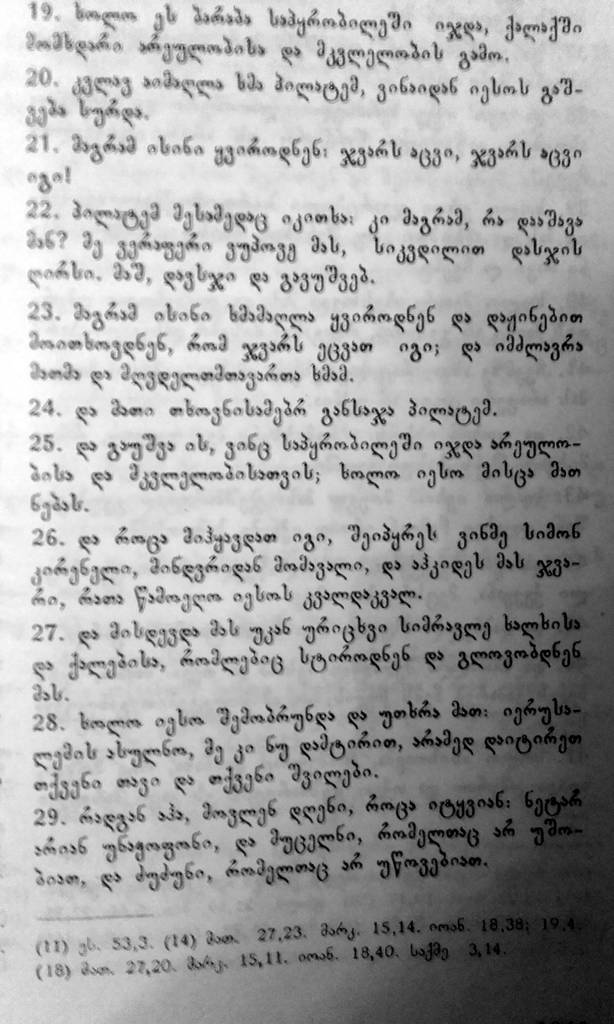 19. ხოლო ეს ბარაბა საპყრობილეში იჯდა, ქალაქში
მომხდარი არეულობისა და მკვლელობის გამო.
20. კვლავ აიმაღლა ხმა პილატემ, ვინაიდან იესოს გაშ-
ვება სურდა.
21. მაგრამ ისინი ყვიროდნენ: ჯვარს აცვი, ჯვარს აცვი
იგი!
22. პილატემ მესამედაც იკითხა: კი მაგრამ, რა დააშავა
მან? მე ვერაფერი ვუპოვე მას, სიკვდილით დასჯის
ღირსი. მაშ, დავსჯი და გავუშვებ.
23. მაგრამ ისინი ხმამაღლა ყვიროდნენ და დაჟინებით
მოითხოვდნენ, რომ ჯვარს ეცვათ იგი; და იმძლავრა
მათმა და მღვდელთმთავართა ხმამ.
24. და მათი თხოვნისამებრ განსაჯა პილატემ.
25. და გაუშვა ის, ვინც საპყრობილეში იჯდა არეულო-
ბისა და მკვლელობისათვის; ხოლო იესო მისცა მათ
ნებას.
26. და როცა მიჰყავდათ იგი, შეიპყრეს ვინმე სიმონ
კირენელი, მინდვრიდან მომავალი, და აჰკიდეს მას ჯვა-
რი, რათა წამოეღო იესოს კვალდაკვალ.
27. და მისდევდა მას უკან ურიცხვი სიმრავლე ხალხისა
და ქალებისა, რომლებიც სტიროდნენ და გლოვობდნენ
მას.
28. ხოლო იესო შემობრუნდა და უთხრა მათ: იერუსა-
ლემის ასულნო, მე კი ნუ დამტირით, არამედ დაიტირეთ
თქვენი თავი და თქვენი შვილები.
29. რადგან აჰა, მოვლენ დღენი, როცა იტყვიან: ნეტარ
არიან უნაყოფონი, და მუცელნი, რომელთაც არ უშო-
ბიათ, და ძუძუნი, რომელთაც არ უწოვებიათ.
(11) ეს. 53,3. (14) მათ. 27,23. მარკ. 15,14. იოან. 18,38; 19,4.
(18) მათ. 27,20. მარკ. 15,11. იოან. 18,40. საქმე 3,14.